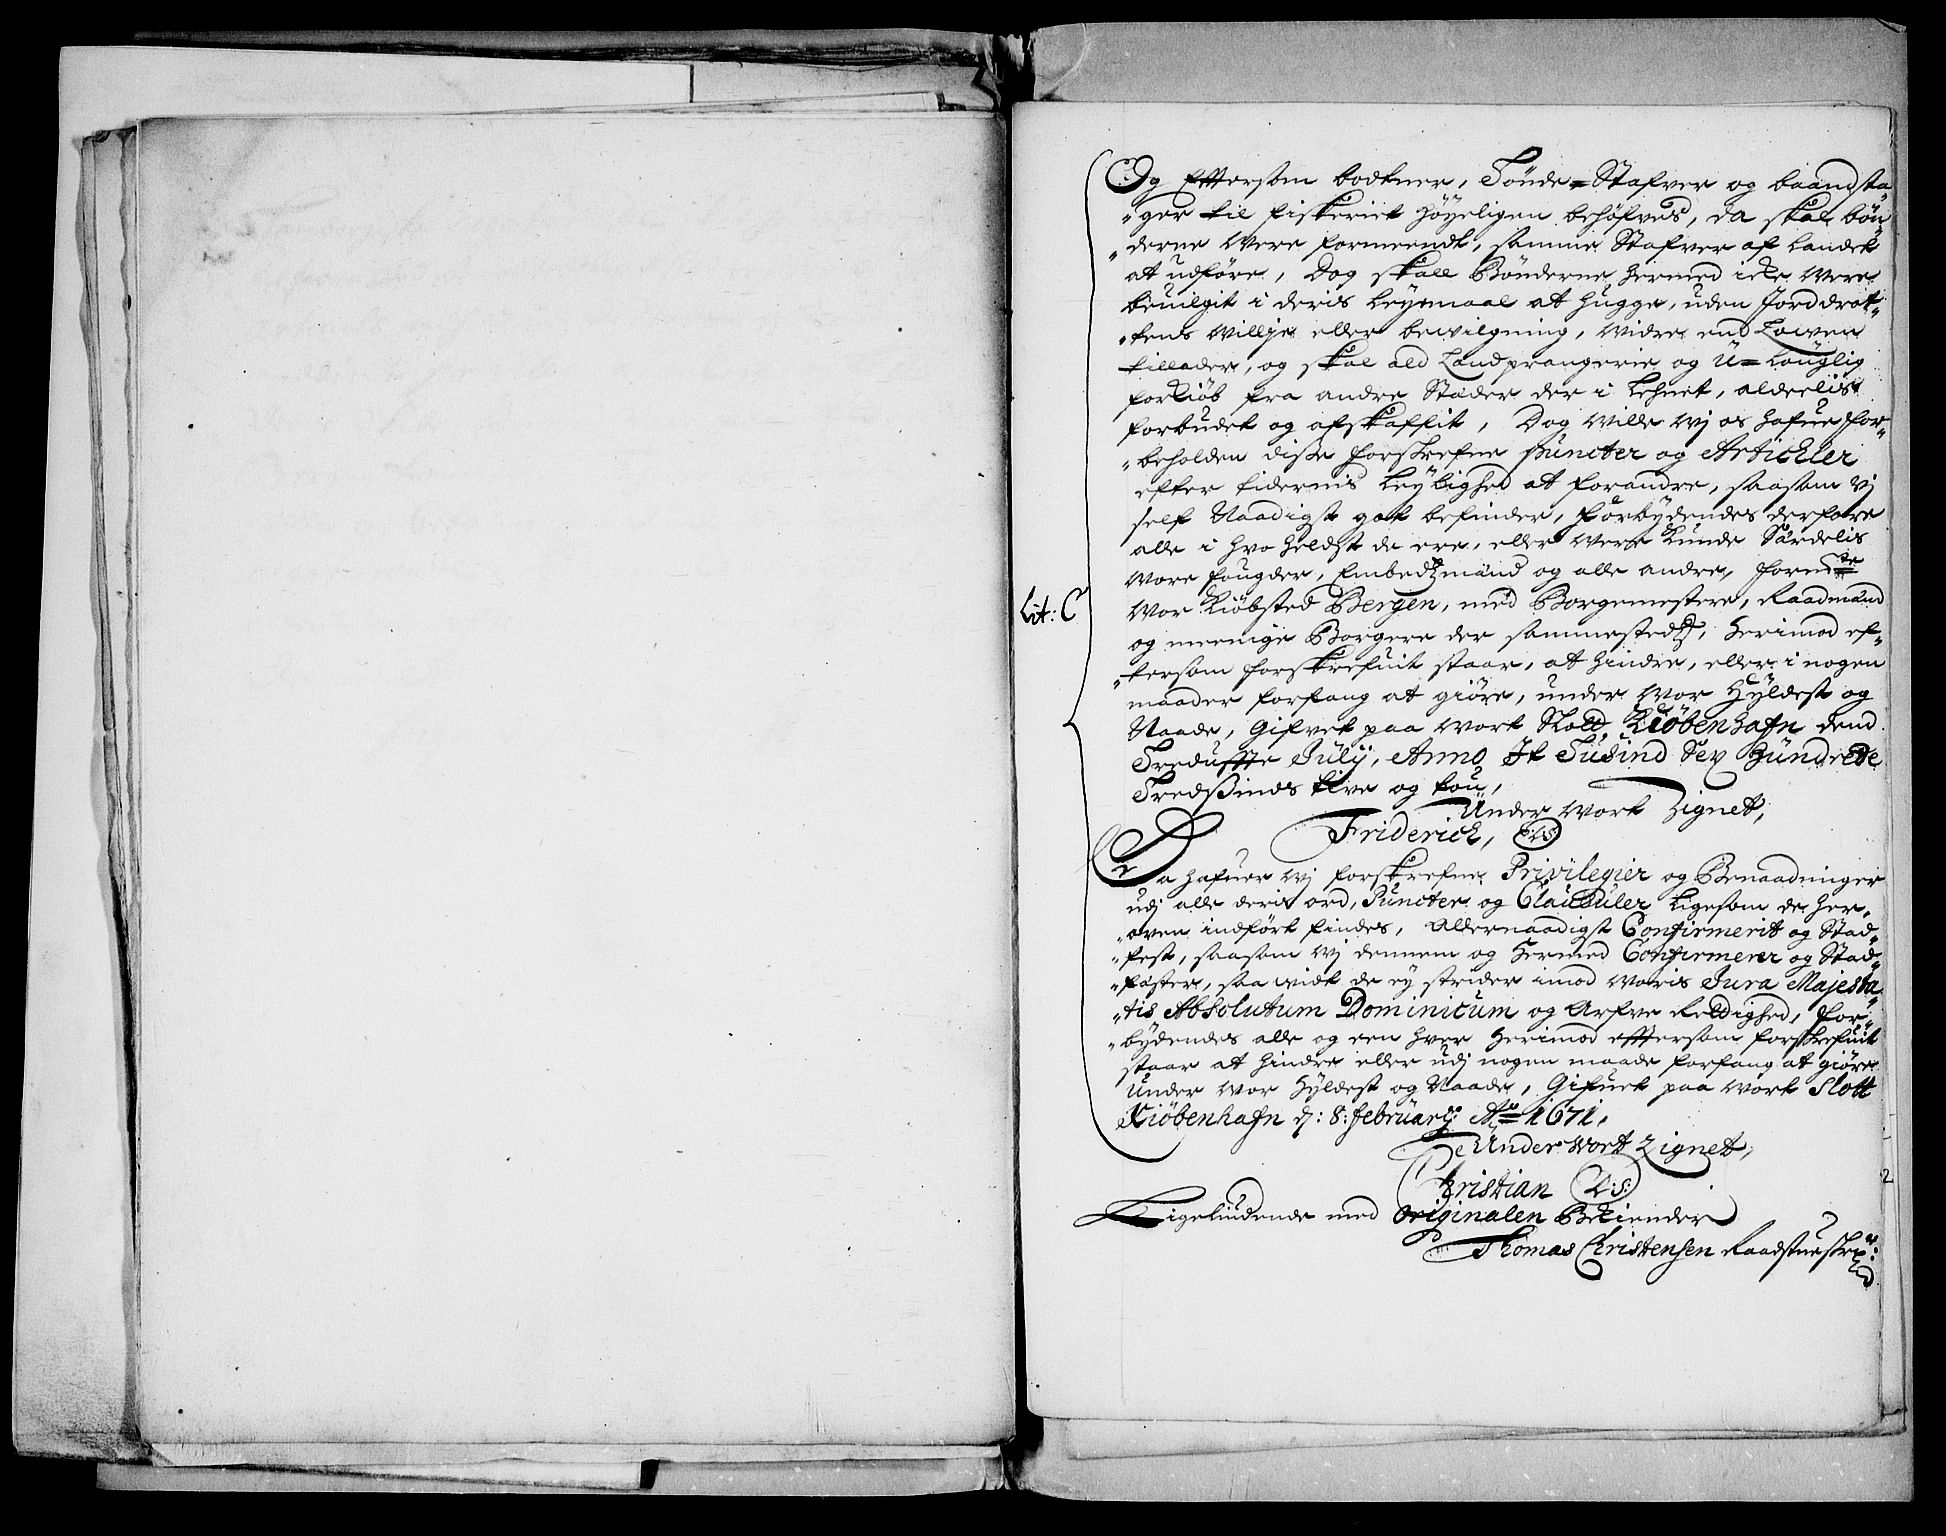 Og Efftersom bodkner, Tönde=Stafver og baandsta„
„ger til fiskeriet höyeligen behöfves, da skal bön„
„derne were formeendt, samme Stafver af landet
at udföre, Dog skall Bönderne hermed icke were
beuilgit i deris leyemaal at hugge, uden Jorddrot„
„tens willje eller bewilgning, widre end Lowen
tillader, og skal ald Landprangerie og U=louglig
forkiöb fra andre Stæder der i Lehnet, aldeelis
forbudet og afskaffit, Dog wille wj os hafue for„
„beholden disse forskrefne puncter og Artickler
efter tidernis leylighed at forandre, saasom vj
self Naadigst got befinder, forbydendes derfore
alle i hvo heldst de ere, eller were kunde Særdelis
wore fougder, Embedzmænd og alle andre, formte
Lit: C
wor Kiöbsted Bergen, med Borgemestere, Raadmænd
og meenige Borgere der sammestedz, herimod ef„
„tersom forskrefuit staar, at hindre, eller i nogen
maader forfang at giöre, under wor hyldest og
Naade, Gifvet paa wort Slott Kiöbenhafn dend
Tredufffte July, Anno Et Tusind Sex Hundrede
Tredssinds tive og tou,
Under wort Zignet,
Friderich, L:S:
Da hafuer wj forskrefne Privilegier og Benaadninger
udj alle deris ord, Puncter og Clausuler ligesom de her„
„oven indfört findes, Allernaadigst Confirmerit og Stad„
„fest, saasom wj dennem og hermed Confirmerer og Stad„
„fæster, saa widt de ey strider imod woris Jura Majesta„
„tis Absolutum Dominicum og Arfve Rettighed, for„
„bydendes alle og een hver herimod effttersom forskrefuit
staar at hindre eller udj nogen maade forfang at giöre
Under wor Hyldest og Naade, Gifuet paa wort Slott
Kiöbenhafn d: 8: february Ao 1671.
Under wort Zignet,
Christian L:S:
Ligeliudende med Originalen Bekiender
Thomas Christensen Raadstueskr: